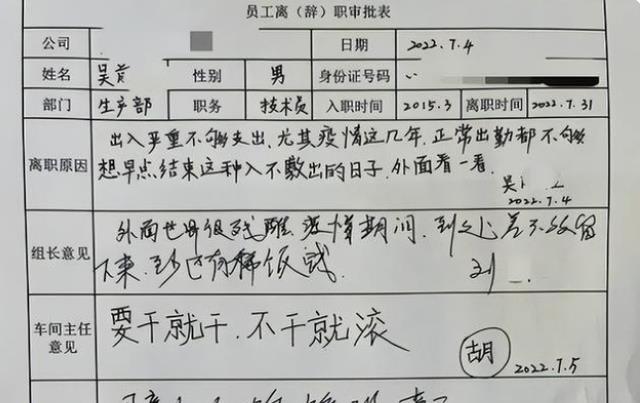 员工离（辞）职审批表
公司 日期 2022.7.4
姓名 吴 性别 男 身份证号码
部门 生产部 职务 技术员 入职时间 2015.3 离职时间 2022.7.31
离职原因
出入严重不够支出，尤其疫情这几年，正常出勤都不够
想早点结束这种入不敷出的日子，外面看一看。
吴
2022.7.4
组长意见
外面世界很 期间，到处差不 留
下来，至少还有稀饭
刘
车间主任
意见
要干就干，不干就滚
胡
2022.7.5